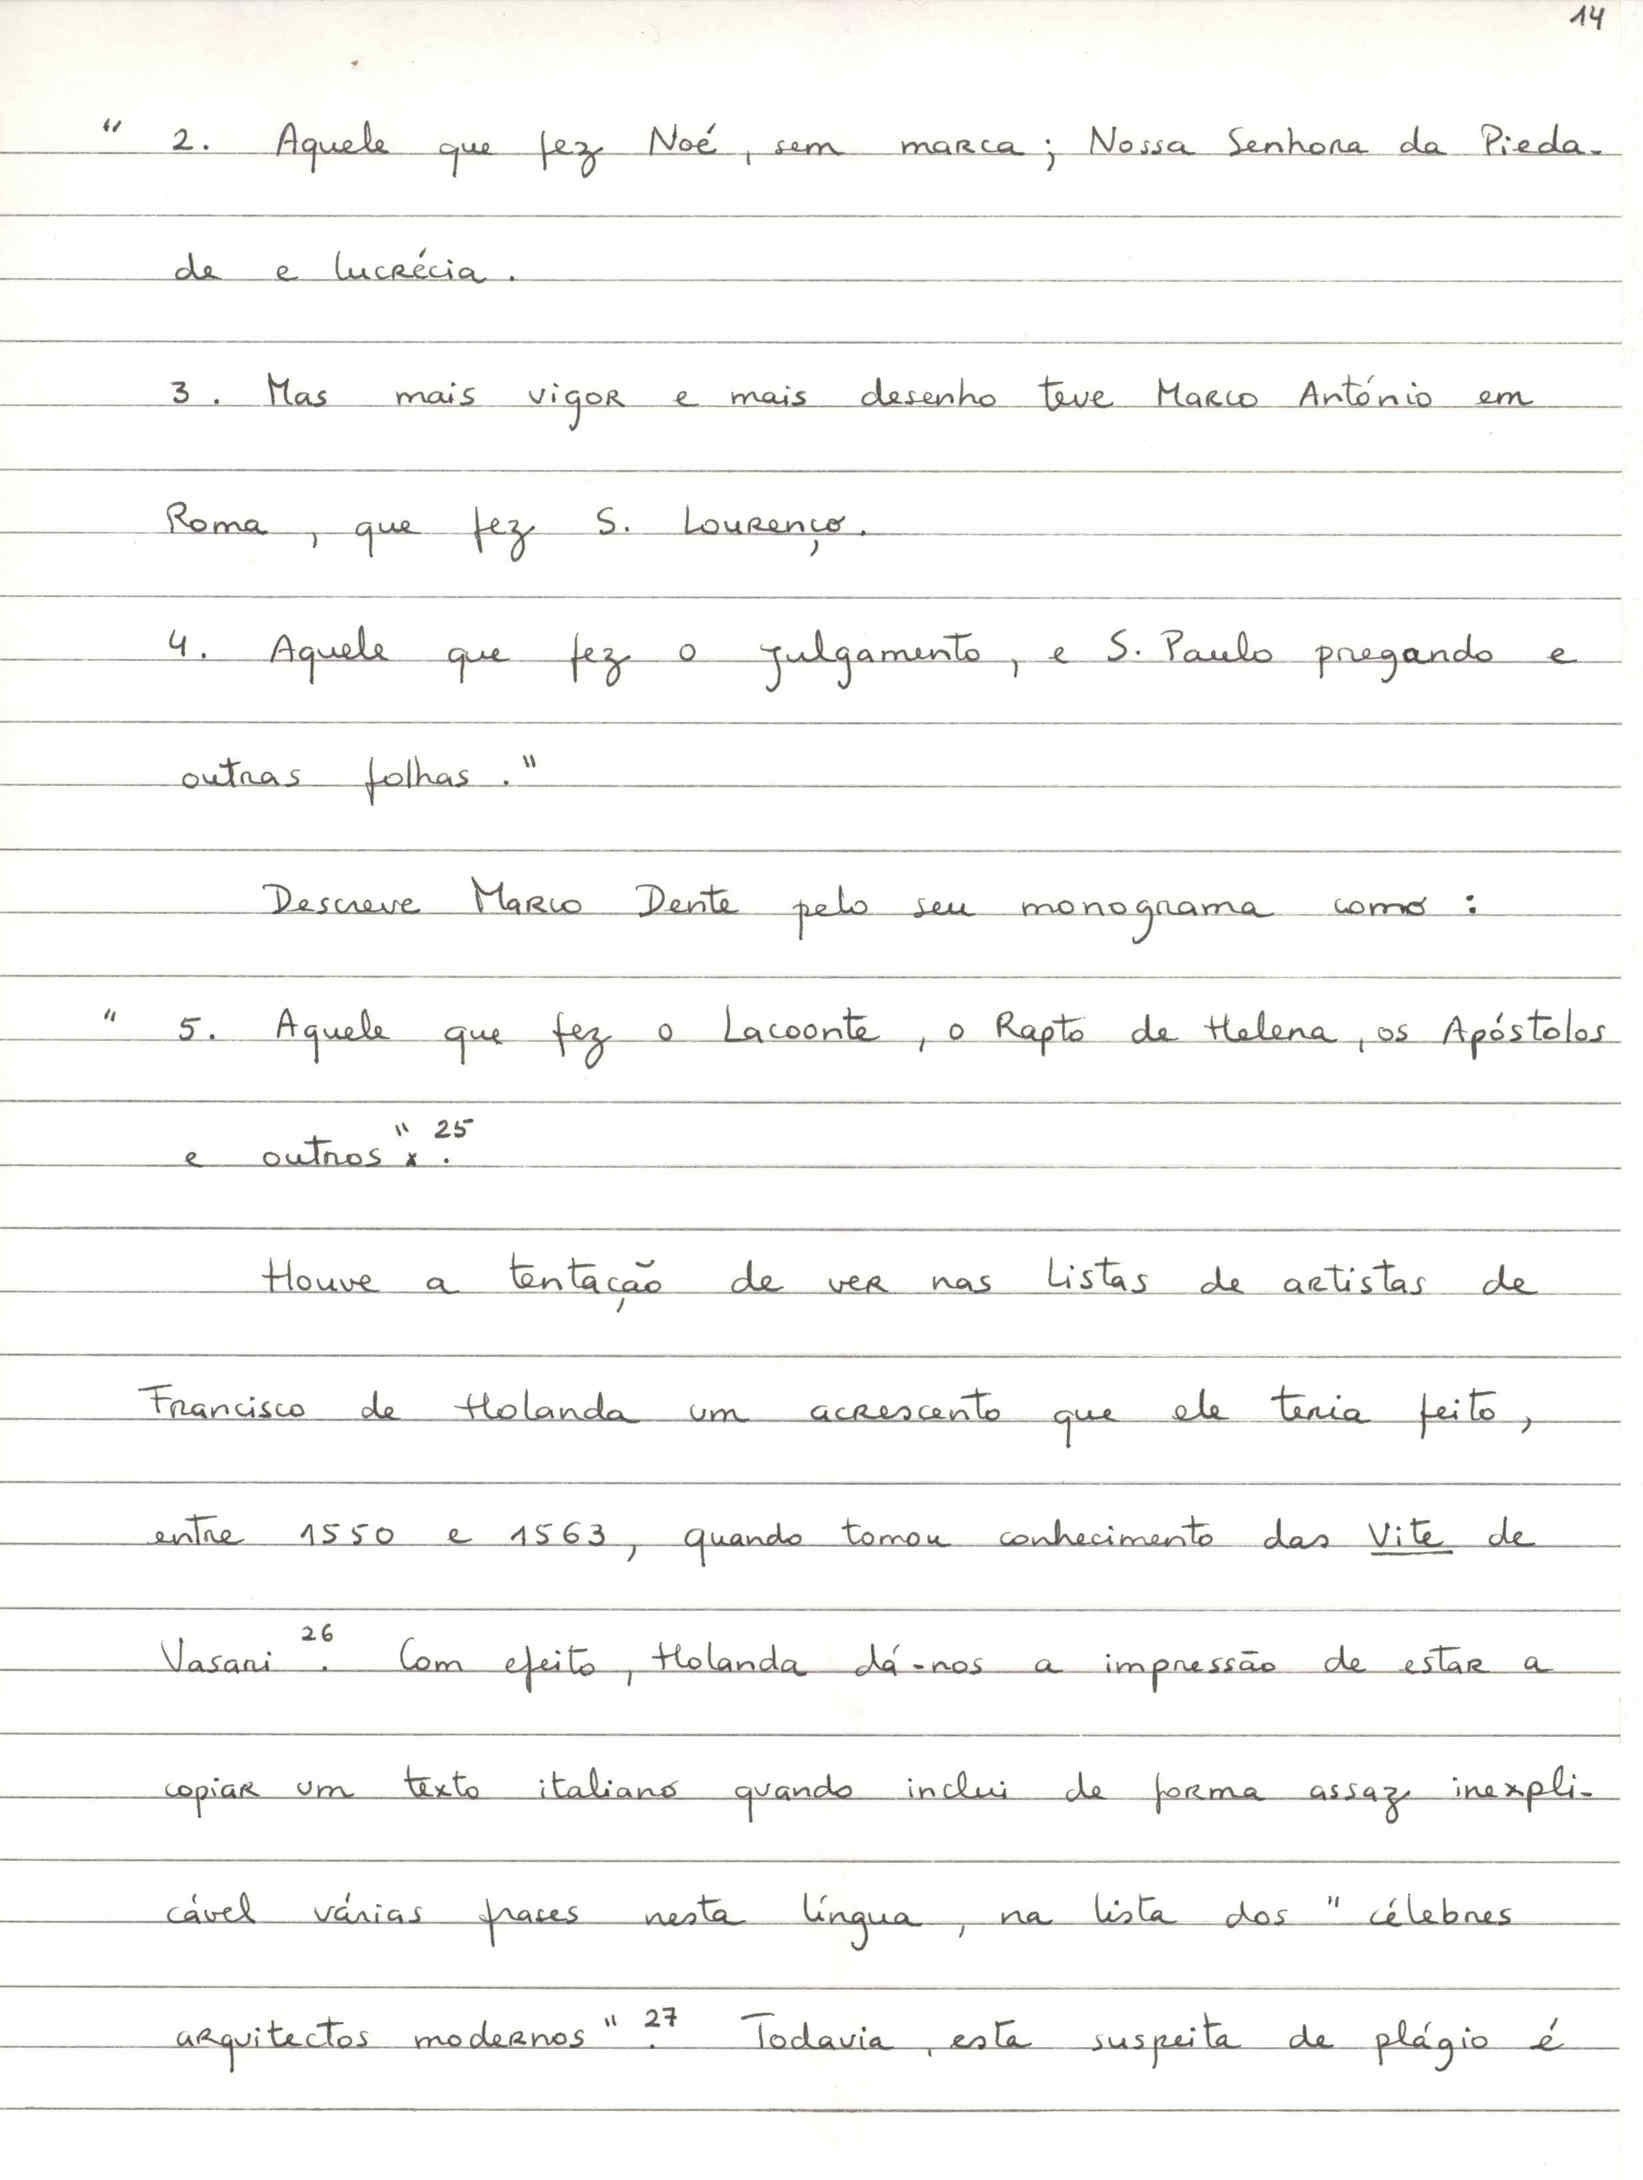 14
" 2. Aquele que fez Noé, sem marca; Nossa Senhora da Pieda-
de e Lucrécia.
3. Mas mais vigor e mais desenho teve Marco António em
Roma, que fez S. Lourenço.
4. Aquele que fez o Julgamento, e S. Paulo pregando e
outras folhas."
Descreve Marco Dente pelo seu monograma como:
" 5. Aquele que fez o Lacoonte, o Rapto de Helena, os Apóstolos
e outros" 25.
Houve a tentação de ver nas listas de artistas de
Francisco de Holanda um acrescento que ele teria feito,
entre 1550 e 1563, quando tomou conhecimento das Vite de
Vasari 26. Com efeito, Holanda dá-nos a impressão de estar a
copiar um texto italiano quando inclui de forma assaz inexpli-
cável várias frases nesta língua, na lista dos "célebres
arquitectos modernos" 27. Todavia, esta suspeita de plágio é